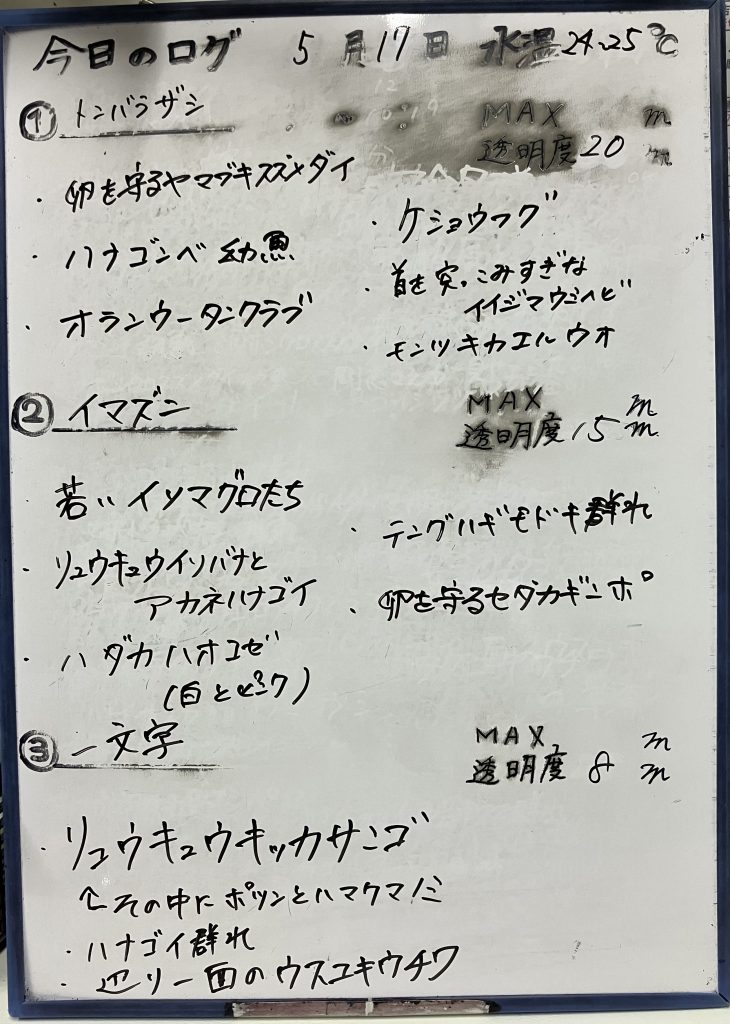 今日のログ 5月17日 水温24~25℃
① トンバラザシ
MAX m
透明度20 m
・卵を守るヤマブキスズメダイ
・ハナゴンベ幼魚
・オランウータンクラブ
・ケショウフグ
・首を突っこみすぎな
イイジマウミヘビ
・モンツキカエルウオ
② イマズニ
MAX m
透明度15 m
・若いイソマグロたち
・リュウキュウイソバナと
アカネハナゴイ
・ハダカハオコゼ
(白とピンク)
・テングハギモドキ群れ
・卵を守るセダカギンポ
③ 一文字
MAX m
透明度 8 m
・リュウキュウキッカサンゴ
↑その中にポツンとハマクマノミ
・ハナゴイ群れ
・辺り一面のウスユキウチワ